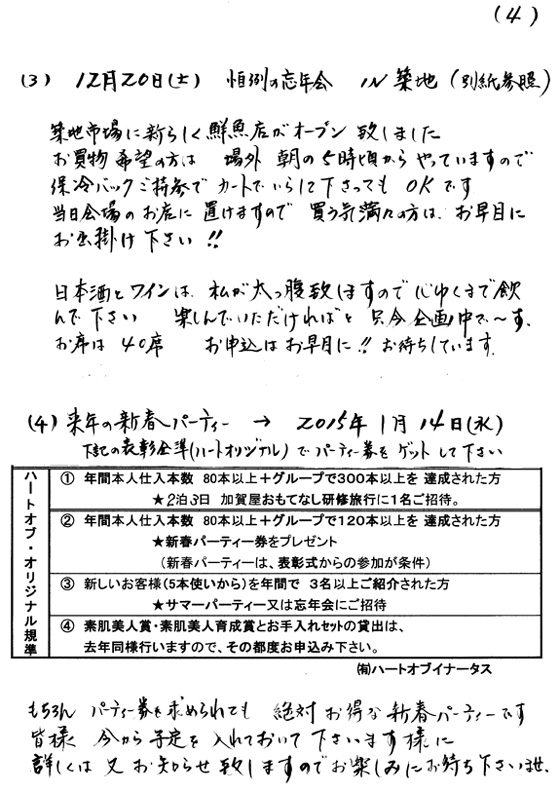 (4)
(3) 12月20日(土) 恒例の忘年会 IN 築地 (別紙参照)
築地市場に新らしく鮮魚店がオープン致しました
お買物希望の方は 場外 朝の5時頃からやっていますので
保冷バックご持参で カートでいらして下さっても OKです
当日会場のお店に置けますので 買う気満々の方は、お早目に
お出掛け下さい!!
日本酒とワインは、私が太っ腹致しますので心ゆくまで飲
んで下さい 楽しんでいただければと 只今企画中で〜す。
お席は 40席 お申込はお早目に!! お待ちしています。
(4) 来年の新春パーティー → 2015年1月14日(水)
下記の表彰基準(ハートオリジナル)でパーティー券をゲットして下さい
ハートオブ・オリジナル規準
① 年間本人仕入本数 80本以上+グループで300本以上を 達成された方
★2泊3日 加賀屋おもてなし研修旅行に1名ご招待。
② 年間本人仕入本数 80本以上+グループで120本以上を 達成された方
★新春パーティー券をプレゼント
(新春パーティーは、表彰式からの参加が条件)
③ 新しいお客様(5本使いから)を年間で 3名以上ご紹介された方
★サマーパーティー又は忘年会にご招待
④ 素肌美人賞・素肌美人育成賞とお手入れセットの貸出は、
去年同様行いますので、その都度お申込み下さい。
㈲ハートオブイナータス
もちろん パーティー券を求められても 絶対お得な新春パーティーです
皆様 今から予定を入れておいて下さいます様に
詳しくは又お知らせ致しますのでお楽しみにお待ち下さいませ、